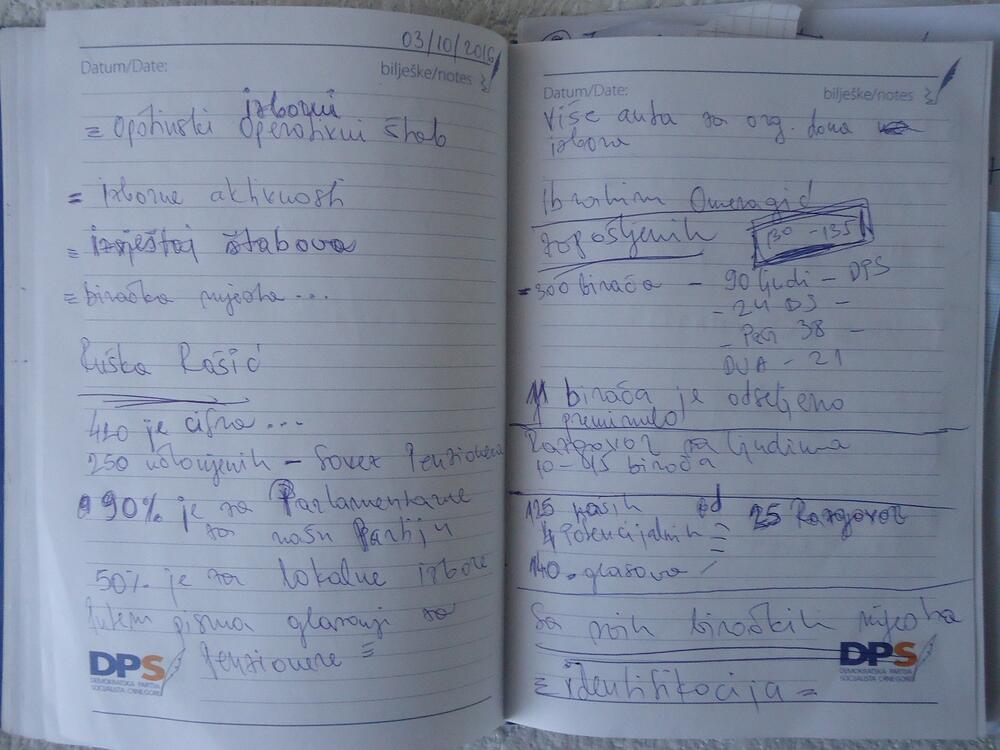 03/10/2016
Datum/Date:
bilješke/notes
izborni
= Opštinski Operativni štab
= izborne aktivnosti
= izvještaj štabova
= biračka mjesta ...
Ruška Rašić
420 je cifra ...
250 učlanjenih - Savez Penzionera
90% je za Parlamentarne
za našu Partiju
50% je za lokalne izbore
Putem pisma glasanje za
Penzionere =
DPS
DEMOKRATSKA PARTIJA
SOCIJALISTA CRNE GORE
Datum/Date:
bilješke/notes
više auta za org. dana
izbora
Ibrahim Omeragić
zapošljenih
130 - 135
- 300 birača - 90 ljudi - DPS
- 24 DS -
- 38 -
- 21
11 birača je odseljeno
preminulo
Razgovor sa ljudima
10-15 birača
125 naših od 25 Razgovor
4 Potencijalnih =
140 glasova
Sa svih biračkih mjesta
= identifikacija =
DPS
DEMOKRATSKA PARTIJA
SOCIJALISTA CRNE GORE